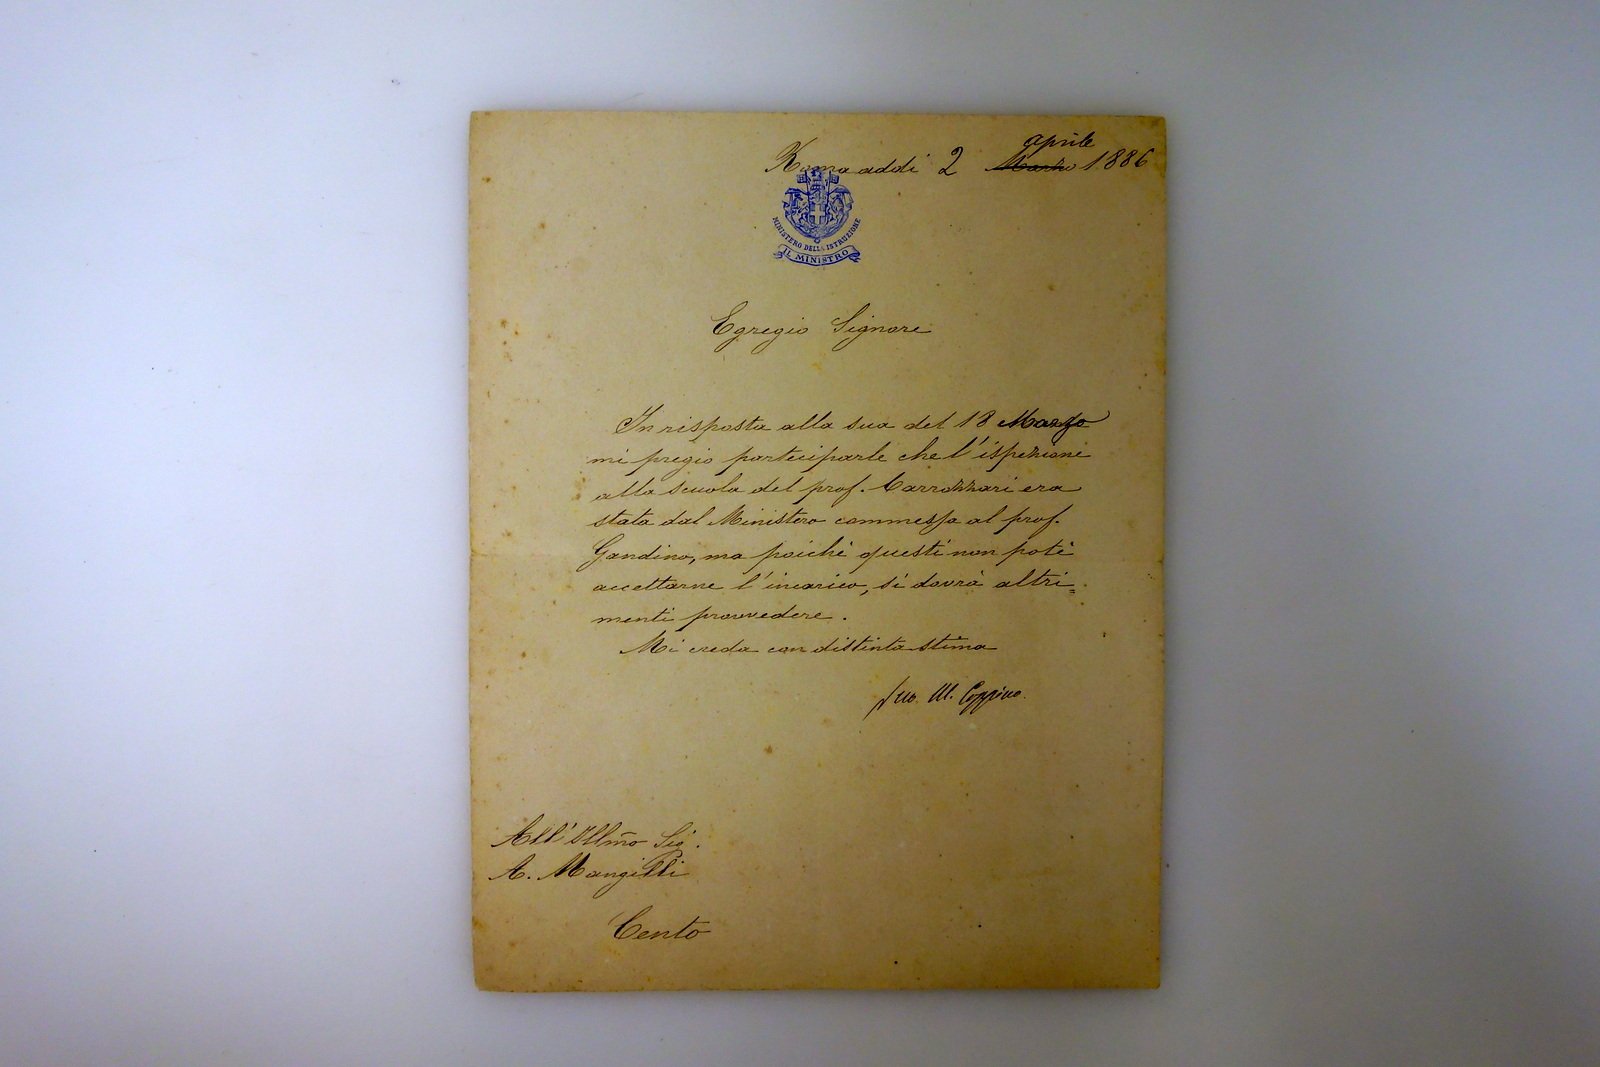 aprile
Roma addi 2 Marzo 1886
MINISTERO DELLA ISTRUZIONE
IL MINISTRO
Egregio Signore
In risposta alla sua del 18 Marzo
mi pregio parteciparle che l'ispezione
alla scuola del prof. Carrozzari era
stata dal Ministero commessa al prof.
Gandino, ma poichè questi non potè
accettarne l'incarico, si dovrà altri=
menti provvedere.
Mi creda con distinta stima
suo M. Coppino.
All' Illmo Sig.
A. Mangilli
Cento